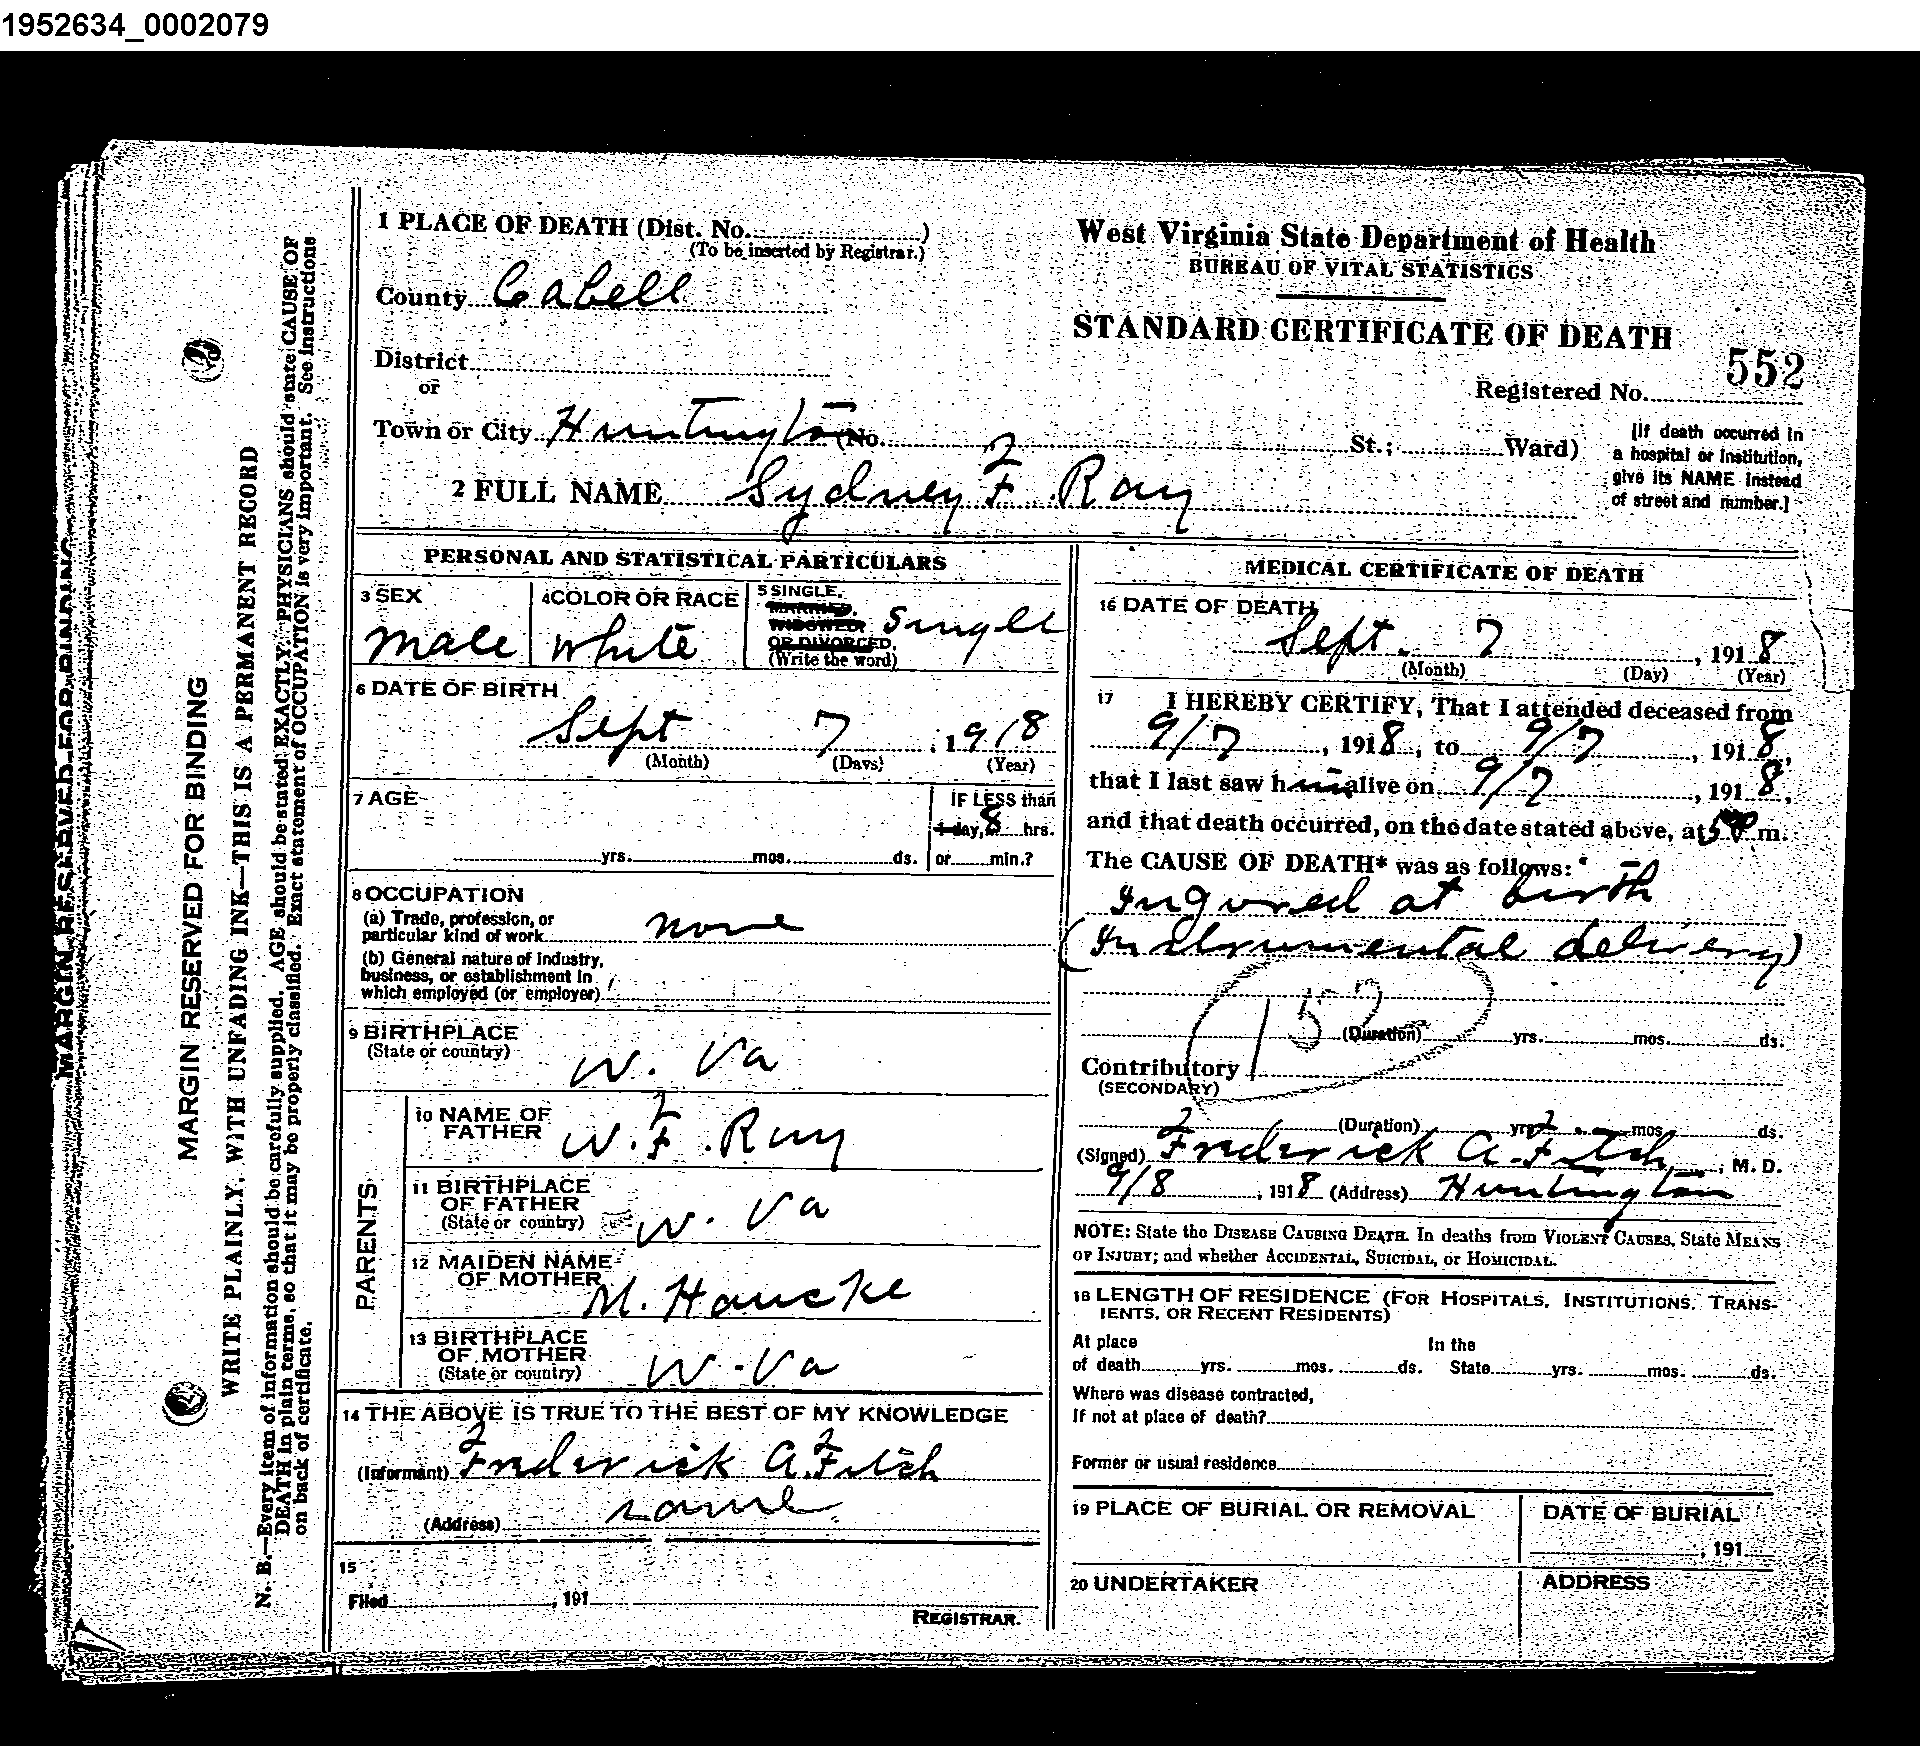 1952634_0002079
1 PLACE OF DEATH (Dist. No. )
(To be inserted by Registrar.)
County Cabell
District
or
Town or City Huntington (No. St.; Ward)
2 FULL NAME Sydney F. Ray
West Virginia State Department of Health
BUREAU OF VITAL STATISTICS
STANDARD CERTIFICATE OF DEATH
Registered No. 552
[If death occurred in
a hospital or institution,
give its NAME instead
of street and number.]
PERSONAL AND STATISTICAL PARTICULARS
3 SEX
male
4 COLOR OR RACE
white
5 SINGLE,
MARRIED,
WIDOWED,
OR DIVORCED,
(Write the word)
Single
6 DATE OF BIRTH
Sept 7, 1918
(Month) (Days) (Year)
7 AGE
yrs. mos. ds.
IF LESS than
1 day, 8 hrs.
or min.?
8 OCCUPATION
(a) Trade, profession, or
particular kind of work none
(b) General nature of industry,
business, or establishment in
which employed (or employer)
9 BIRTHPLACE
(State or country) W. Va
PARENTS
10 NAME OF
FATHER W. F. Ray
11 BIRTHPLACE
OF FATHER
(State or country) W. Va
12 MAIDEN NAME
OF MOTHER M. Haucke
13 BIRTHPLACE
OF MOTHER
(State or country) W. Va
14 THE ABOVE IS TRUE TO THE BEST OF MY KNOWLEDGE
(Informant) Frederick A. Fitch
(Address) same
15
Filed , 191
REGISTRAR.
MEDICAL CERTIFICATE OF DEATH
16 DATE OF DEATH
Sept. 7, 1918
(Month) (Day) (Year)
17 I HEREBY CERTIFY, That I attended deceased from
9/7, 1918, to 9/7, 1918,
that I last saw him alive on 9/7, 1918,
and that death occurred, on the date stated above, at m.
The CAUSE OF DEATH* was as follows:
Ingured at birth
(Instrumental delivery)
152
(Duration) yrs. mos. ds.
Contributory
(SECONDARY)
(Duration) yrs. mos. ds.
(Signed) Frederick A. Fitch, M. D.
9/8, 1918 (Address) Huntington
NOTE: State the DISEASE CAUSING DEATH. In deaths from VIOLENT CAUSES, State MEANS
OF INJURY; and whether ACCIDENTAL, SUICIDAL, or HOMICIDAL.
18 LENGTH OF RESIDENCE (FOR HOSPITALS, INSTITUTIONS, TRANS-
IENTS, OR RECENT RESIDENTS)
At place In the
of death yrs. mos. ds. State yrs. mos. ds.
Where was disease contracted,
If not at place of death?
Former or usual residence
19 PLACE OF BURIAL OR REMOVAL
DATE OF BURIAL
, 191
20 UNDERTAKER
ADDRESS
MARGIN RESERVED FOR BINDING
MARGIN RESERVED FOR BINDING
WRITE PLAINLY, WITH UNFADING INK—THIS IS A PERMANENT RECORD
N. B.—Every item of information should be carefully supplied. AGE should be stated EXACTLY. PHYSICIANS should state CAUSE OF
DEATH in plain terms, so that it may be properly classified. Exact statement of OCCUPATION is very important. See instructions
on back of certificate.